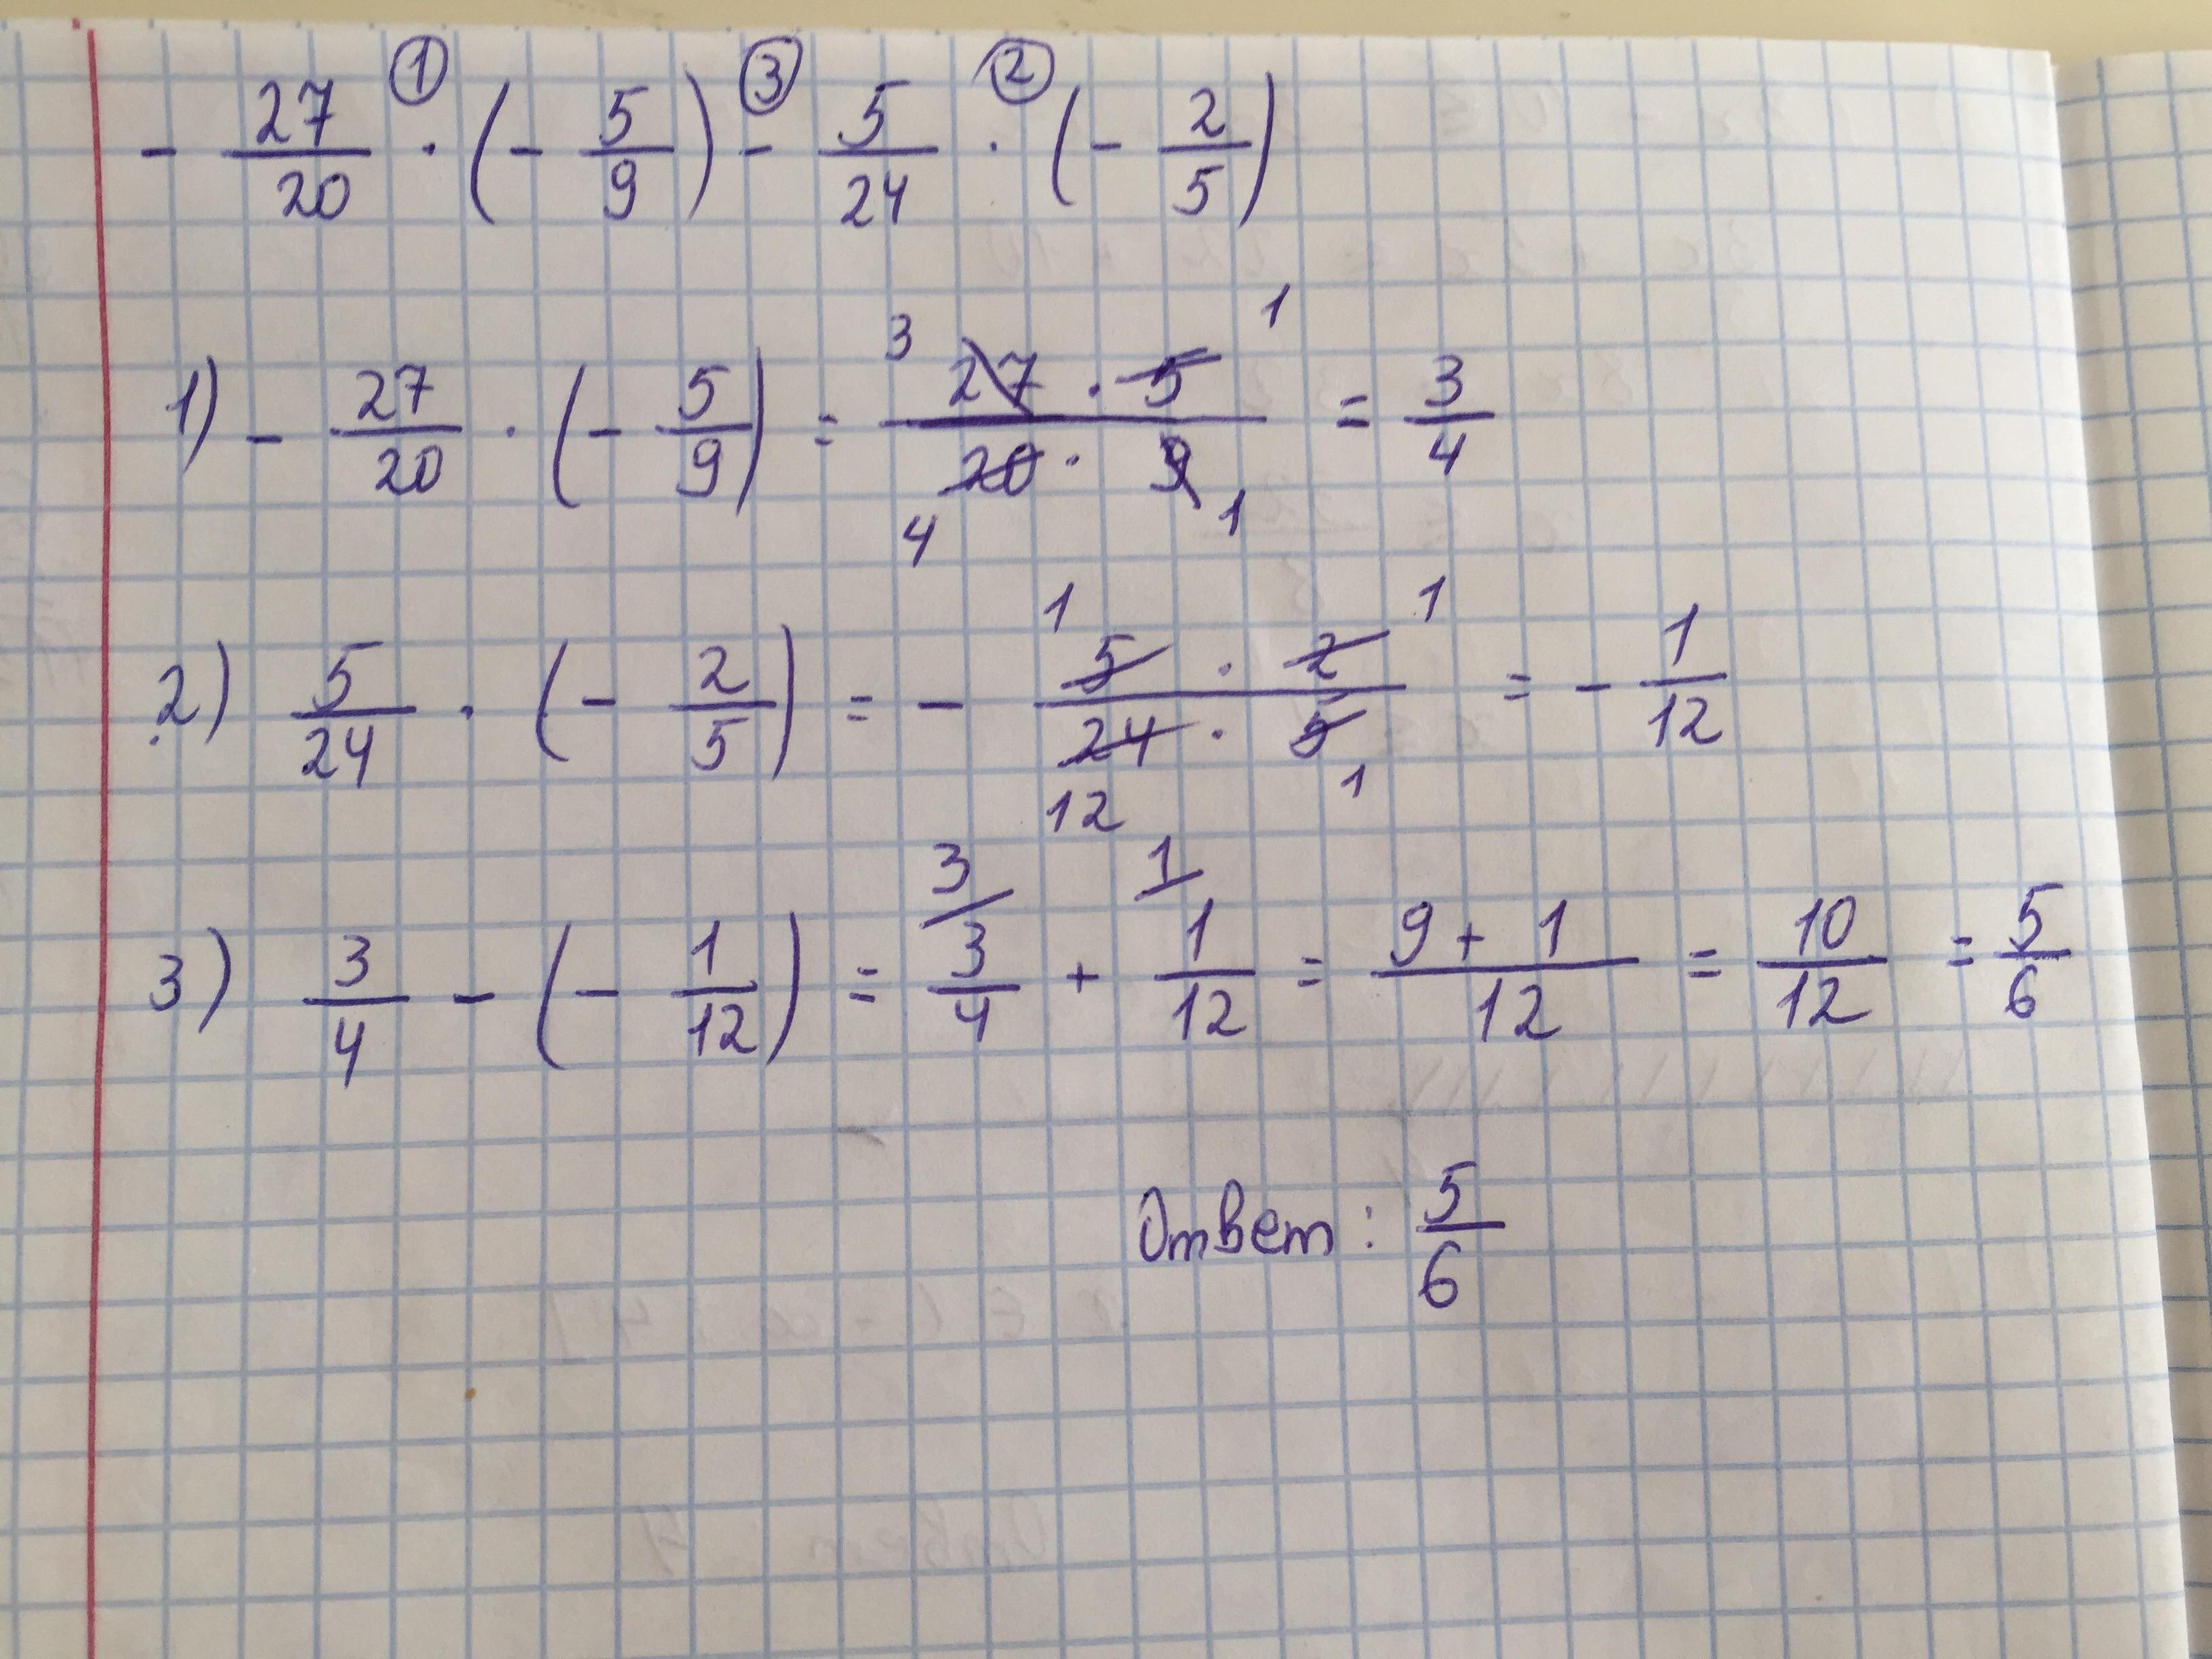 - 27/20 ① · (- 5/9) ③ - 5/24 ② · (- 2/5)
1) - 27/20 · (- 5/9) = 3 27 · 5 1 / 4 20 · 9 1 = 3/4
2) 5/24 · (- 2/5) = - 1 5 · 2 1 / 12 24 · 5 1 = - 1/12
3) 3/4 - (- 1/12) = 3/ 3/4 + 1/ 1/12 = 9 + 1 / 12 = 10/12 = 5/6
Ответ: 5/6